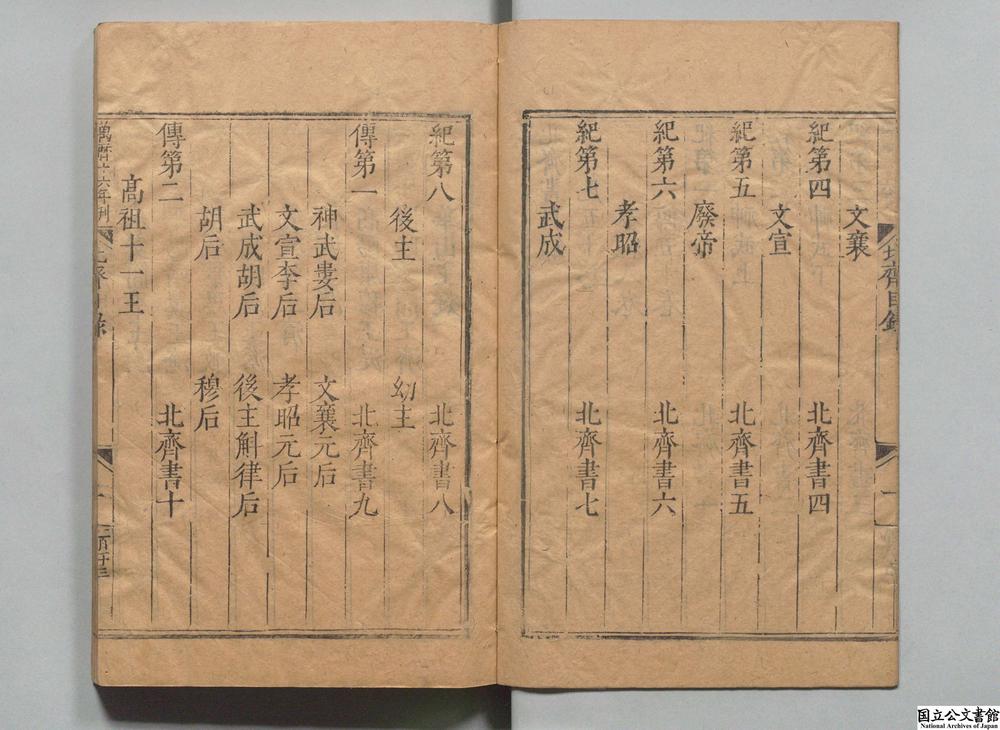 文襄
紀第四 北齊書四
文宣
紀第五 北齊書五
廢帝
紀第六 北齊書六
孝昭
紀第七 北齊書七
武成
紀第八 北齊書八
後主 幼主
傳第一 北齊書九
神武婁后 文襄元后
文宣李后 孝昭元后
武成胡后 後主斛律后
胡后 穆后
傳第二 北齊書十
高祖十一王
国立公文書館
National Archives of Japan